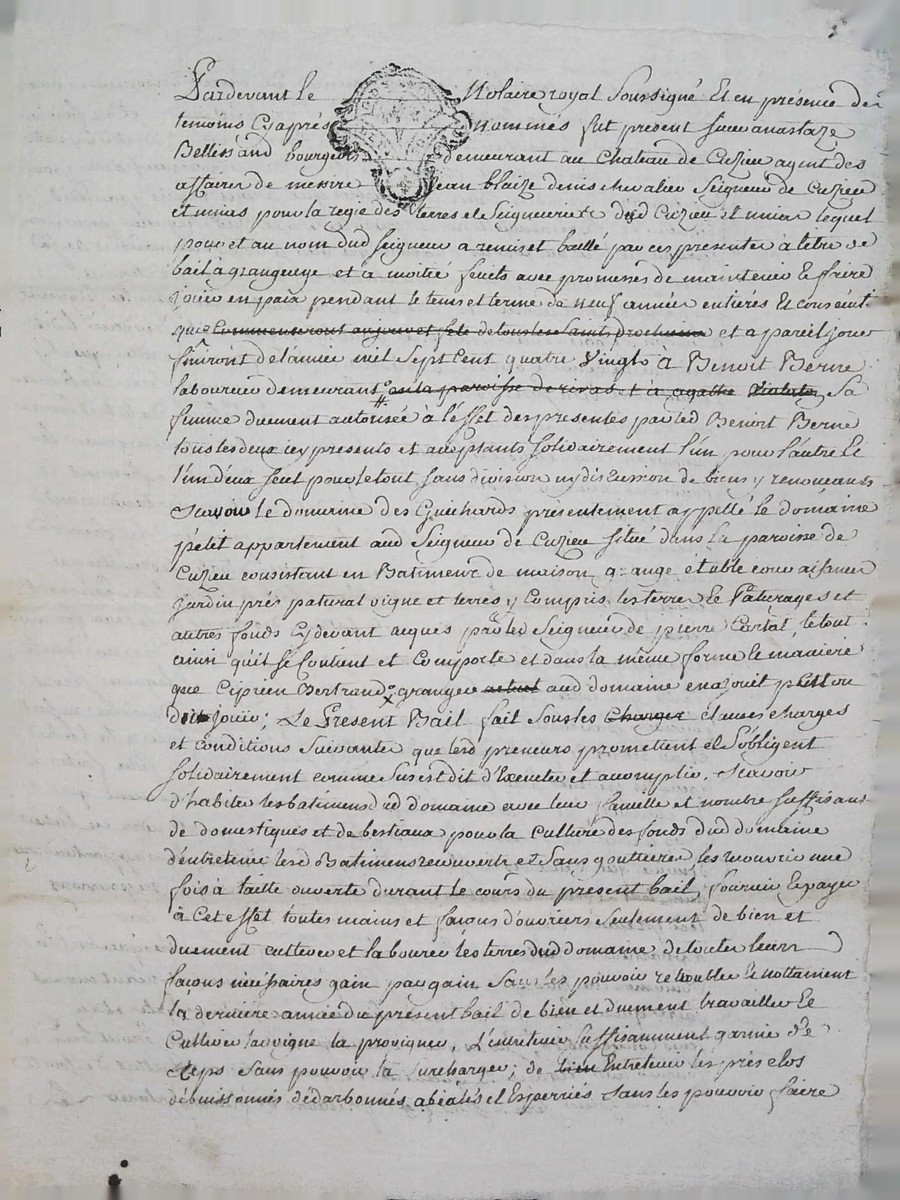 Pardevant le Notaire royal soussigné Et en présence des
temoins Cyaprés nommés fut present sieur anastaze
Bellissand bourgeois demeurant au Chateau de Cuzieu agent des
affaires de messire Jean blaize denis chevalier Seigneur de Cuzieu
et unias pour la regie des terres et Seigneuries dud Cuzieu et unias lequel
pour et au nom dud seigneur a remis et baillé par ces presentes a titre de
bail à grangeage et à moitié fruits avec promesses de maintenir Et faire
jouir en paix pendant le tems et terme de neuf années entieres Et consecut.
que Commenseront au jour et fete de tous les Saints prochaine et a pareil jour
finiront de l'année mil Sept Cent quatre Vingts à Benoit Berne
laboureur demeurant en la paroisse de rivas et à agathe Sa
femme duement autorisée à l'effet des presentes par led Benoit Berne
tous les deux icy presents et acceptants solidairement l'un pour l'autre Et
l'un d'eux seul pour le tout sans division ny discussion de biens y renonceants
Scavoir le domaine des Guichards présentement appellé le domaine
petit appartenant aud Seigneur de Cuzieu situé dans la paroisse de
Cuzieu consistant en Batiments de maison grange étable cour aisances
jardin prés patural vigne et terres y Compris les terres Et Paturages et
autres fonds cydevant acquis par led Seigneur de pierre Cartal, le tout
ainsi qu'il se Contient et Comporte et dans la même forme Et maniere
que Ciprien Bertrand granger actuel aud domaine en a jouit peut ou
doit jouir; Le Present Bail fait sous les Charges clauses charges
et conditions suivantes que lesd preneurs promettent et s'obligent
solidairement comme sus est dit d'Executer et accomplir. Scavoir
d'habiter les batimens dud domaine avec leur famille et nombre suffisant
de domestiques et de bestiaux pour la Culture des fonds dud domaine
d'entretenir lesd Batimens recouverts et sans gouttieres, les recouvrir une
fois à taille ouverte durant le cours du present bail, fournir Et payer
à Cet effet toutes mains et façons d'ouvriers seulement de bien et
duement cultiver et labourer les terres dud domaine de toutes leurs
façons nécessaires gain par gain sans les pouvoir retroubler Et nottament
la derniere année du present bail de bien et duement travailler Et
Cultiver la vigne la provigner, l'entretenir suffisamment garnie de
ceps sans pouvoir la surcharger; de bien Entretenir les prés clos
débuissonnés dédarbonnés, abéalés et Esserpés sans les pouvoir faire